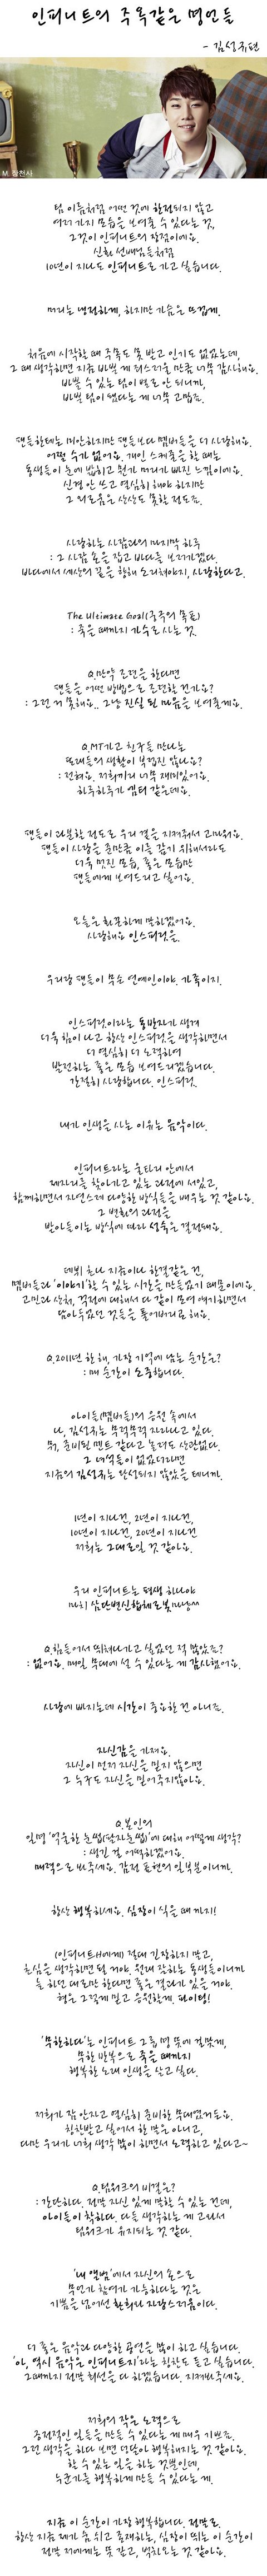 인피니트의 주옥같은 명언들
- 김성규편
M. 장천사
팀 이름처럼 어떤 것에 한정되지 않고
여러 가지 모습을 보여줄 수 있다는 것,
그것이 인피니트의 장점이에요.
신화 선배님들처럼
10년이 지나도 인피니트로 가고 싶습니다.
머리는 냉정하게, 하지만 가슴은 뜨겁게.
처음에 시작할 때 주목도 못 받고 인기도 없었는데,
그 때 생각하면 지금 바쁜 게 죄스러울 만큼 너무 감사해요.
바쁠 수 있는 팀이 별로 안 되니까,
바쁜 팀이 됐다는 게 너무 고맙죠.
팬들한테는 미안하지만 팬들보다 멤버들을 더 사랑해요.
어쩔 수가 없어요. 개인 스케줄을 할 때는
동생들이 눈에 밟히고 뭔가 머리가 빠진 느낌이에요.
신경 안 쓰고 열심히 해야 하지만
그 외로움은 상상도 못할 정도죠.
사랑하는 사람과의 마지막 하루
: 그 사람 손을 잡고 바다를 보러가겠다.
바다에서 세상의 끝을 향해 소리쳐야지, 사랑한다고.
The Ultimate Goal(궁극의 목표)
: 죽을 때까지 가수로 사는 것.
Q.만약 조련을 한다면
팬들을 어떤 방법으로 조련할 건가요?
: 그런 거 못해요.. 그냥 진실 된 마음을 보여줄게요.
Q.MT가고 친구들 만나는
또래들의 생활이 부럽진 않나요?
: 전혀요. 저희끼리 너무 재미있어요.
하루하루가 엠티 같은데요.
팬들이 과분한 정도로 우리 곁을 지켜줘서 고마워요.
팬들이 사랑을 준만큼 이를 갚기 위해서라도
더욱 멋진 모습, 좋은 모습만
팬들에게 보여드리고 싶어요.
오늘은 화끈하게 말하겠어요.
사랑해요 인스피릿을.
우리랑 팬들이 무슨 연예인이야. 가족이지.
인스피릿이라는 동반자가 생겨
더욱 힘이 나고 항상 인스피릿을 생각하면서
더 열심히 더 노력하여
발전하는 좋은 모습 보여드리겠습니다.
간절히 사랑합니다. 인스피릿.
내가 인생을 사는 이유는 음악이다.
인피니트라는 울타리 안에서
제자리를 찾아나고 있는 과정에 서있고,
함께하면서 자연스레 다양한 방식들을 배우는 것 같아요.
그 변화의 과정을
받아들이는 방식에 따라 성숙은 결정돼요.
데뷔 초나 지금이나 한결같은 건,
멤버들과 '이야기'할 수 있는 시간을 만들었기 때문이에요.
고민과 상처, 걱정에 대해서 다 같이 모여 얘기하면서
담아두었던 것들을 풀어버리곤 해요.
Q.2011년 한 해, 가장 기억에 남는 순간은?
: 매 순간이 소중합니다.
아이들(멤버들)의 응원 속에서
나, 김성규는 무럭무럭 자라나고 있다.
뭐, 준비된 멘트 같다고 놀려도 상관없다.
그 녀석들이 없었더라면
지금의 김성규는 완성되지 않았을 테니까.
1년이 지나건, 2년이 지나건,
10년이 지나건, 20년이 지나건
저희는 그대로일 것 같아요.
우리 인피니트는 평생 하나야
마치 삼단변신합체로봇마냥^^
Q.힘들어서 뛰쳐나가고 싶었던 적 많았죠?
: 없어요. 매일 무대에 설 수 있다는 게 감사했어요.
사랑에 빠지는데 시간이 중요한 건 아니죠.
자신감을 가져요.
자신이 먼저 자신을 믿지 않으면
그 누구도 자신을 믿어주지않아요.
Q.본인의
일명 '억울한 눈썹(팔자눈썹)'에 대해 어떻게 생각?
: 생긴 걸 어떡하겠어요.
매력으로 봐주세요. 감정 표현의 일부분이니까.
항상 행복하세요. 심장이 식을 때 까지!
(인피니트H에게) 절대 긴장하지 말고,
초심을 생각하면 될 거야. 원래 잘하는 동생들이니까
늘 하던 대로만 한다면 좋은 결과가 있을 거야.
형은 그렇게 믿고 응원할게. 파이팅!
'무한하다'는 인피니트 그룹 명 뜻에 걸맞게,
무한 반복으로 죽을 때까지
행복한 노래 인생을 살고 싶다.
저희가 잠 안자고 열심히 준비한 무대였거든요.
칭찬받고 싶어서 한 말은 아니고,
다만 우리가 너희 생각 많이 하면서 노력하고 있다고~
Q.팀워크의 비결은?
: 간단하다. 정말 자신 있게 말할 수 있는 건데,
아이들이 착하다. 다들 생각하는 게 고와서
팀워크가 유지되는 것 같다.
'내 앨범'에서 자신의 손으로
무언가 참여가 가능하다는 것은
기쁨을 넘어선 환희나 자랑스러움이다.
더 좋은 음악과 다양한 공연을 많이 하고 싶습니다.
'아, 역시 음악은 인피니트지'라는 칭찬도 듣고 싶습니다.
그때까지 정말 최선을 다 하겠습니다. 지켜봐주세요.
저희의 작은 노력으로
긍정적인 일들을 만들 수 있다는 게 매우 기쁘죠.
그런 생각을 하다 보면 덩달아 행복해지는 것 같아요.
할 수 있는 일을 하는 것뿐인데,
누군가를 행복하게 만들 수 있다는 게.
지금 이 순간이 가장 행복합니다. 정말로.
항상 지금 제가 숨 쉬고 존재하는, 심장이 뛰는 이 순간이
정말 저에게는 꿈 같고, 벅차오는 것 같아요.